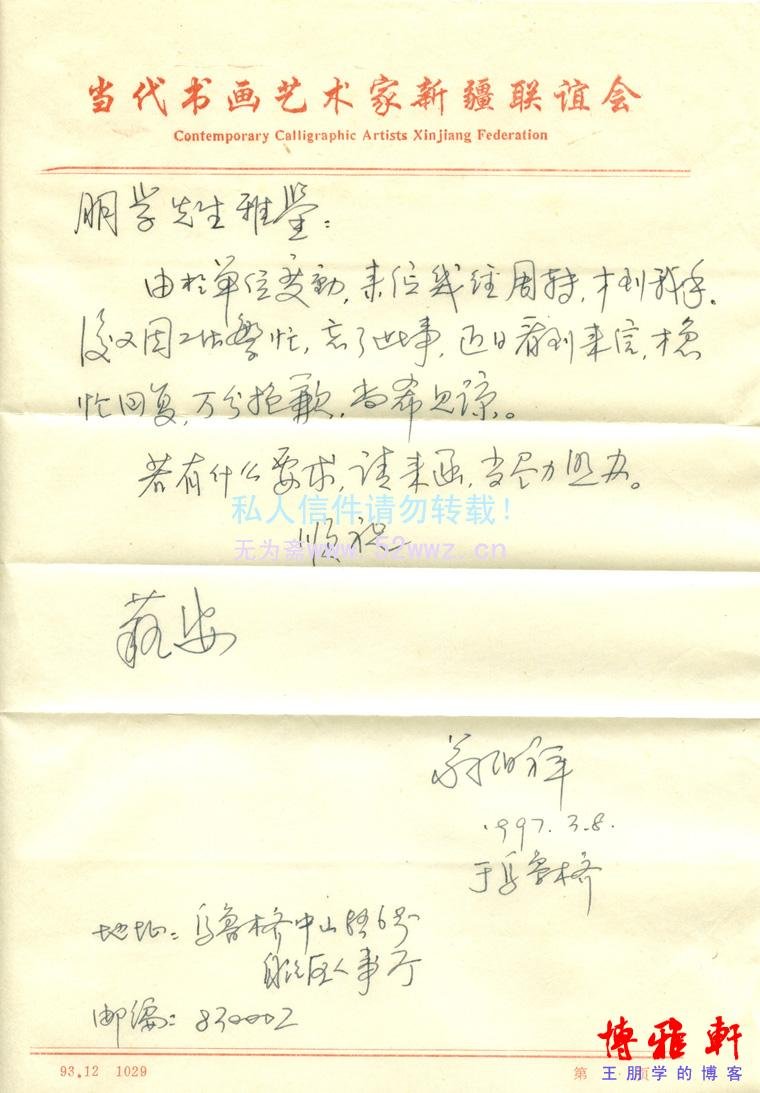 当代书画艺术家新疆联谊会
Contemporary Calligraphic Artists Xinjiang Federation
朋学先生雅鉴：
由於单位变動，来信几经周转，才到我手。
後又因工作繁忙，忘了此事，近日看到来信，才急
忙回复，万分抱歉，尚希见谅。
若有什么要求，请来函，当尽力照办。
私人信件请勿转载！
顺祝
无为斋www.52wwz.cn
藝安
祥
1997.3.8.
于乌鲁木齐
地址：乌鲁木齐中山路6号
自治区人事厅
邮编：830002
博雅軒
93.12 1029
第 页
王朋学的博客